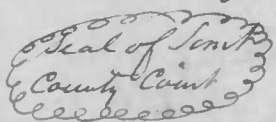 Seal of Smith
County Court